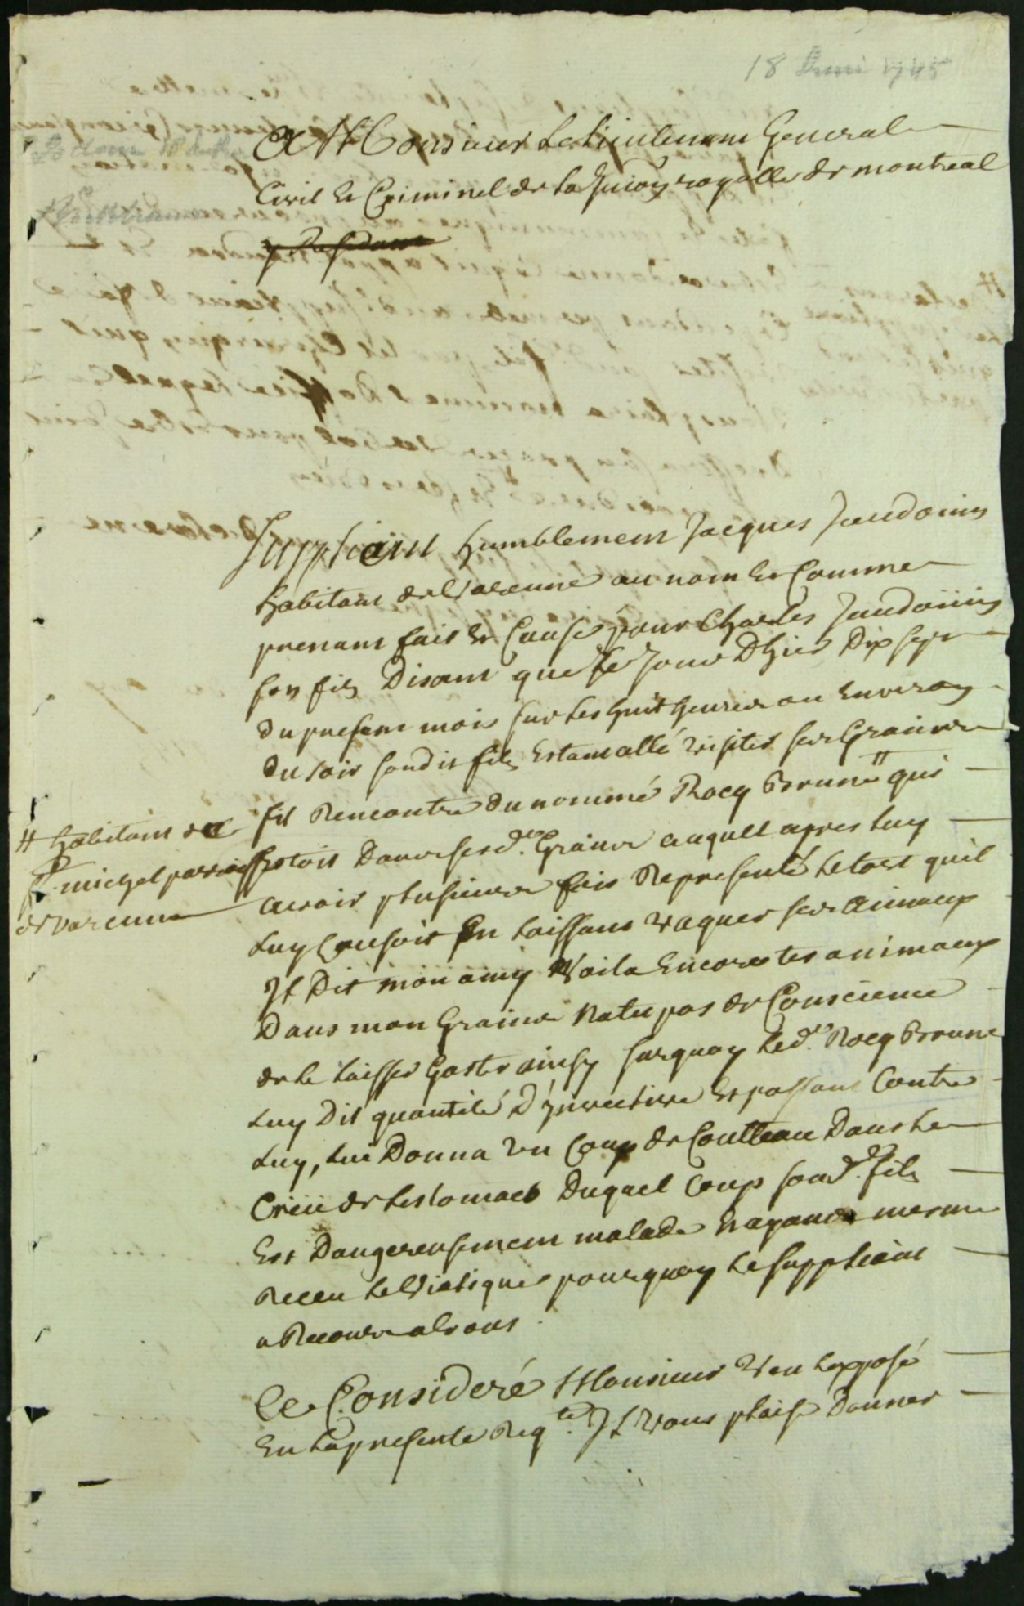 18 Juin 1745
A Monsieur Le Lieutenant General
Civil Et Criminel de La Juron royalle de montreal
Suppliant humblement Jacques Jaudoüin
habitant de Varenne au nom Et Comme
prenant fait Et Cause pour Charles Jaudoüin
son fils Disant que Le Jour D'hier Dix sept
Du present mois sur Les huit heures ou Environ
Du soir sondit fils Estant allé visiter ses Grains
fit Rencontre du nommé Rocq Brunet # qui
# habitant de
St michel parroisse
de varenne
Estoit Dans ses d. Grains auquel apres Luy
avoir plusieurs fois Representé Le tort quil
Luy Causoit En Laissant vaquer ses animaux
Il Dit mon amy Voila Encore tes animaux
Dans mon Grains Natu pas de Conscience
de le Laisser Gaster ainsy surquoy Led. Rocq Brunet
Luy Dit quantité D'ynvective Et passant Contre
Luy, Lui Donna un Coup de Coutteau Dans Le
Creü de Lestomach Duquel Coup sond. fils
Est Dangereusement malade Nayant mesme
Receu Le Viatique pourquoy Le suppliant
a Recours a Vous
Ce Consideré Monsieur Veu Lexposé
En La presente Reqte. Il Vous plaise Donner